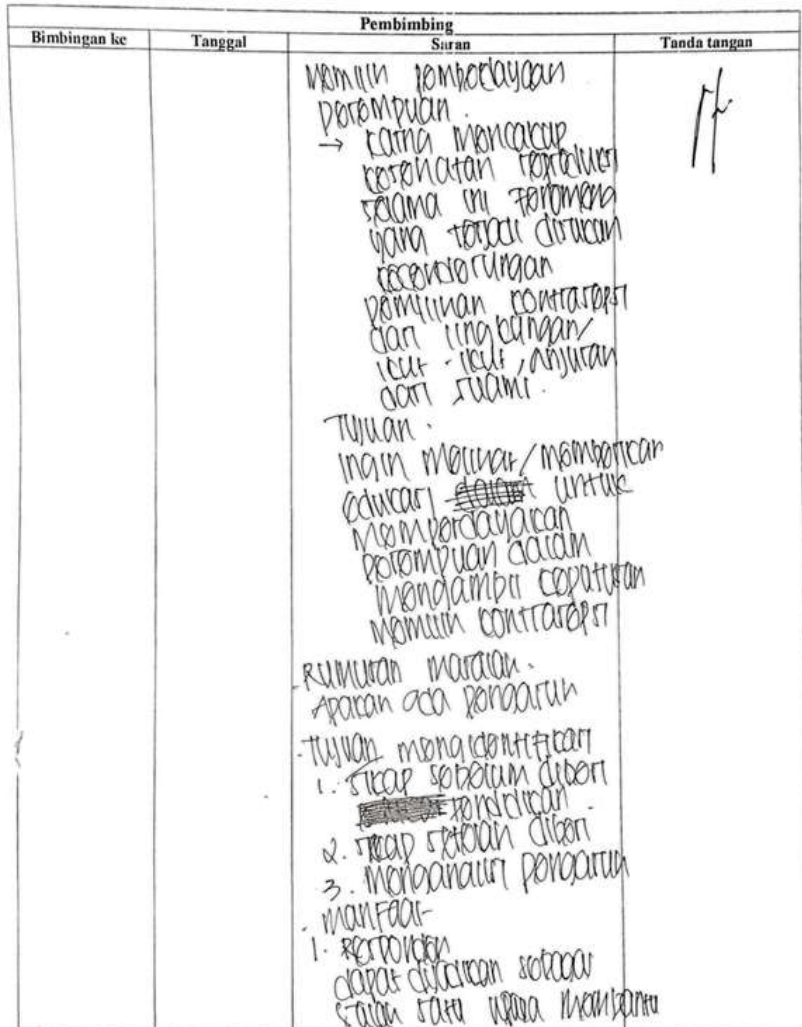 Pembimbing
Bimbingan ke Tanggal Saran Tanda tangan
Memilih pemberdayaan
perempuan.
→ karna mencakup
kesehatan reproduksi
selama ini fenomena
yang terjadi disukan
kecenderungan
pemilihan kontrasepsi
dari lingkungan/
ikut-ikut, Anjuran
dari suami.
Tujuan.
ingin melihat/memberikan
edukasi untuk
memperdayakan
perempuan dalam
mengambil keputusan
memilih kontrasepsi
-Rumusan masalah.
Apakah ada pengaruh
-Tujuan mengidentifikasi
1. sikap sebelum diberi
pendidikan
2. sikap setelah diberi.
3. Menganalisi pengaruh
-Manfaat
1. Responden
dapat dijadikan sebagai
salah satu upaya membantu